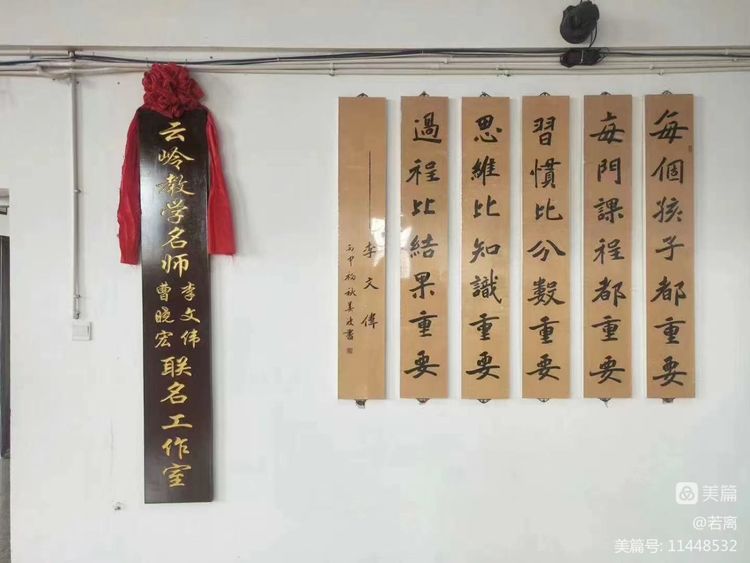 云岭教学名师
李文伟
曹晓宏
联名工作室
每個孩子都重要
每門課程都重要
習慣比分數重要
思維比知識重要
過程比結果重要
李文偉
丙申初秋姜
書
美篇
@若离
美篇号: 11448532